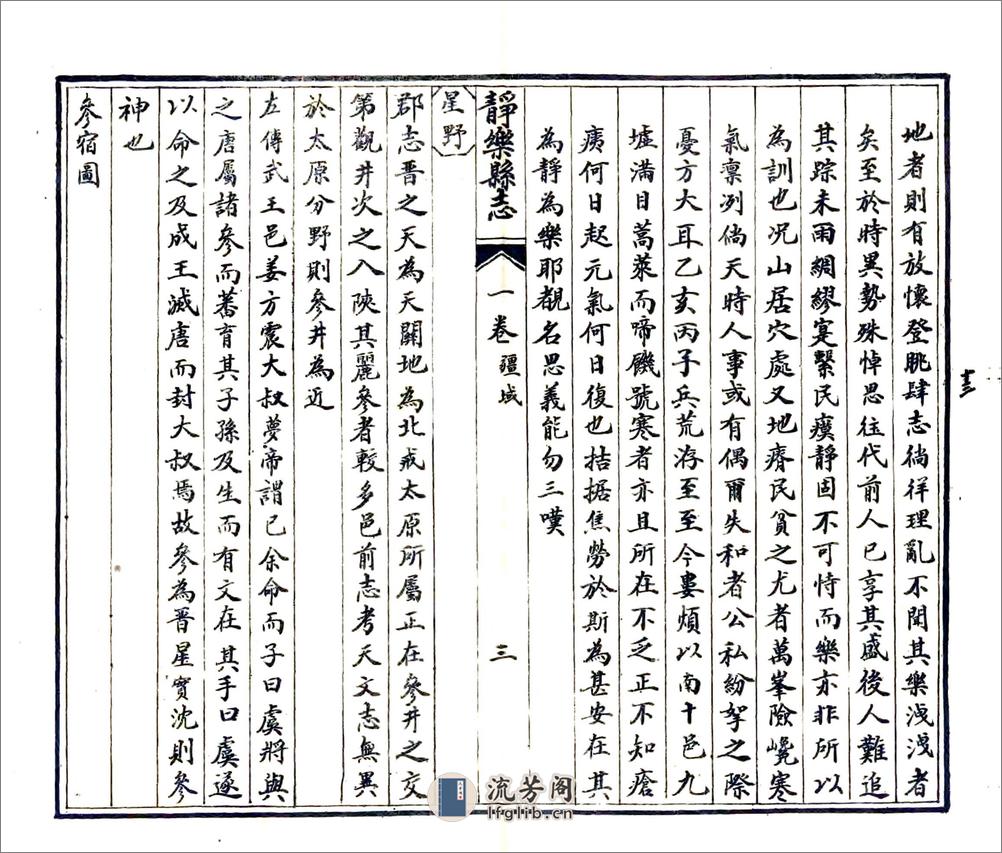 地者則有放懷登眺肆志徜徉理亂不聞其樂洩洩者
矣至於時異勢殊悼思往代前人已享其盛後人難追
其踪未雨綢繆寔繫民瘼靜固不可恃而樂亦非所以
為訓也况山居穴處又地瘠民貧之尤者萬峯險巉寒
氣禀冽倘天時人事或有偶爾失和者公私紛挐之際
憂方大耳乙亥丙子兵荒洊至至今婁煩以南十邑九
墟滿目蒿萊而啼饑號寒者亦且所在不乏正不知瘡
痍何日起元氣何日復也拮据焦勞於斯為甚安在其
為靜為樂耶覩名思義能勿三嘆
靜樂縣志
一卷
疆域
三
星野
郡志晋之天為天闗地為北戒太原所屬正在參井之交
第觀井次之入陝其麗參者較多邑前志考天文志無異
於太原分野則參井為近
左傳武王邑姜方震大叔夢帝謂已余命而子曰虞將與
之唐屬諸參而蕃育其子孫及生而有文在其手曰虞遂
以命之及成王滅唐而封大叔焉故參為晋星實沈則參
神也
參宿圖
十三
流芳阁
lfglib.cn